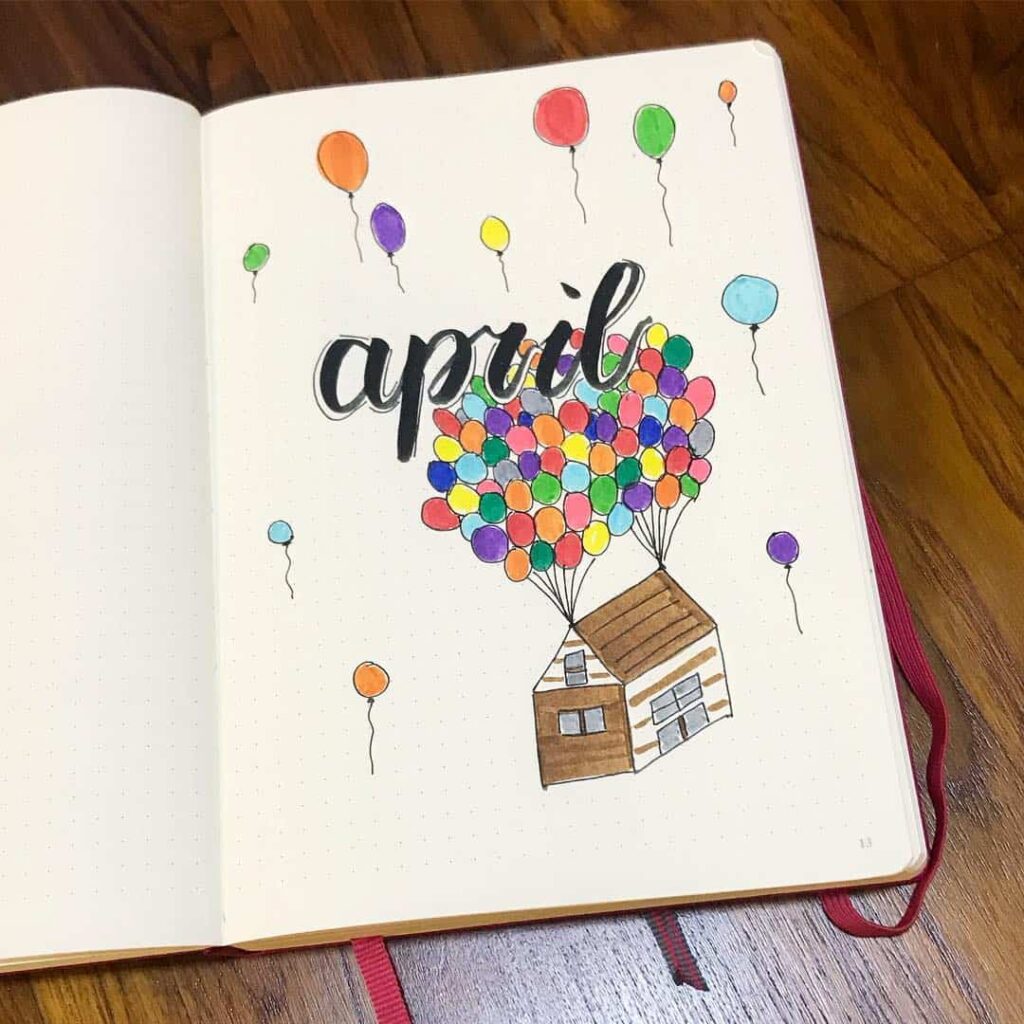 april
13